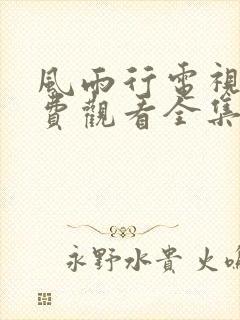 風雨行電視
費觀看全集
永野水貴 火鳴